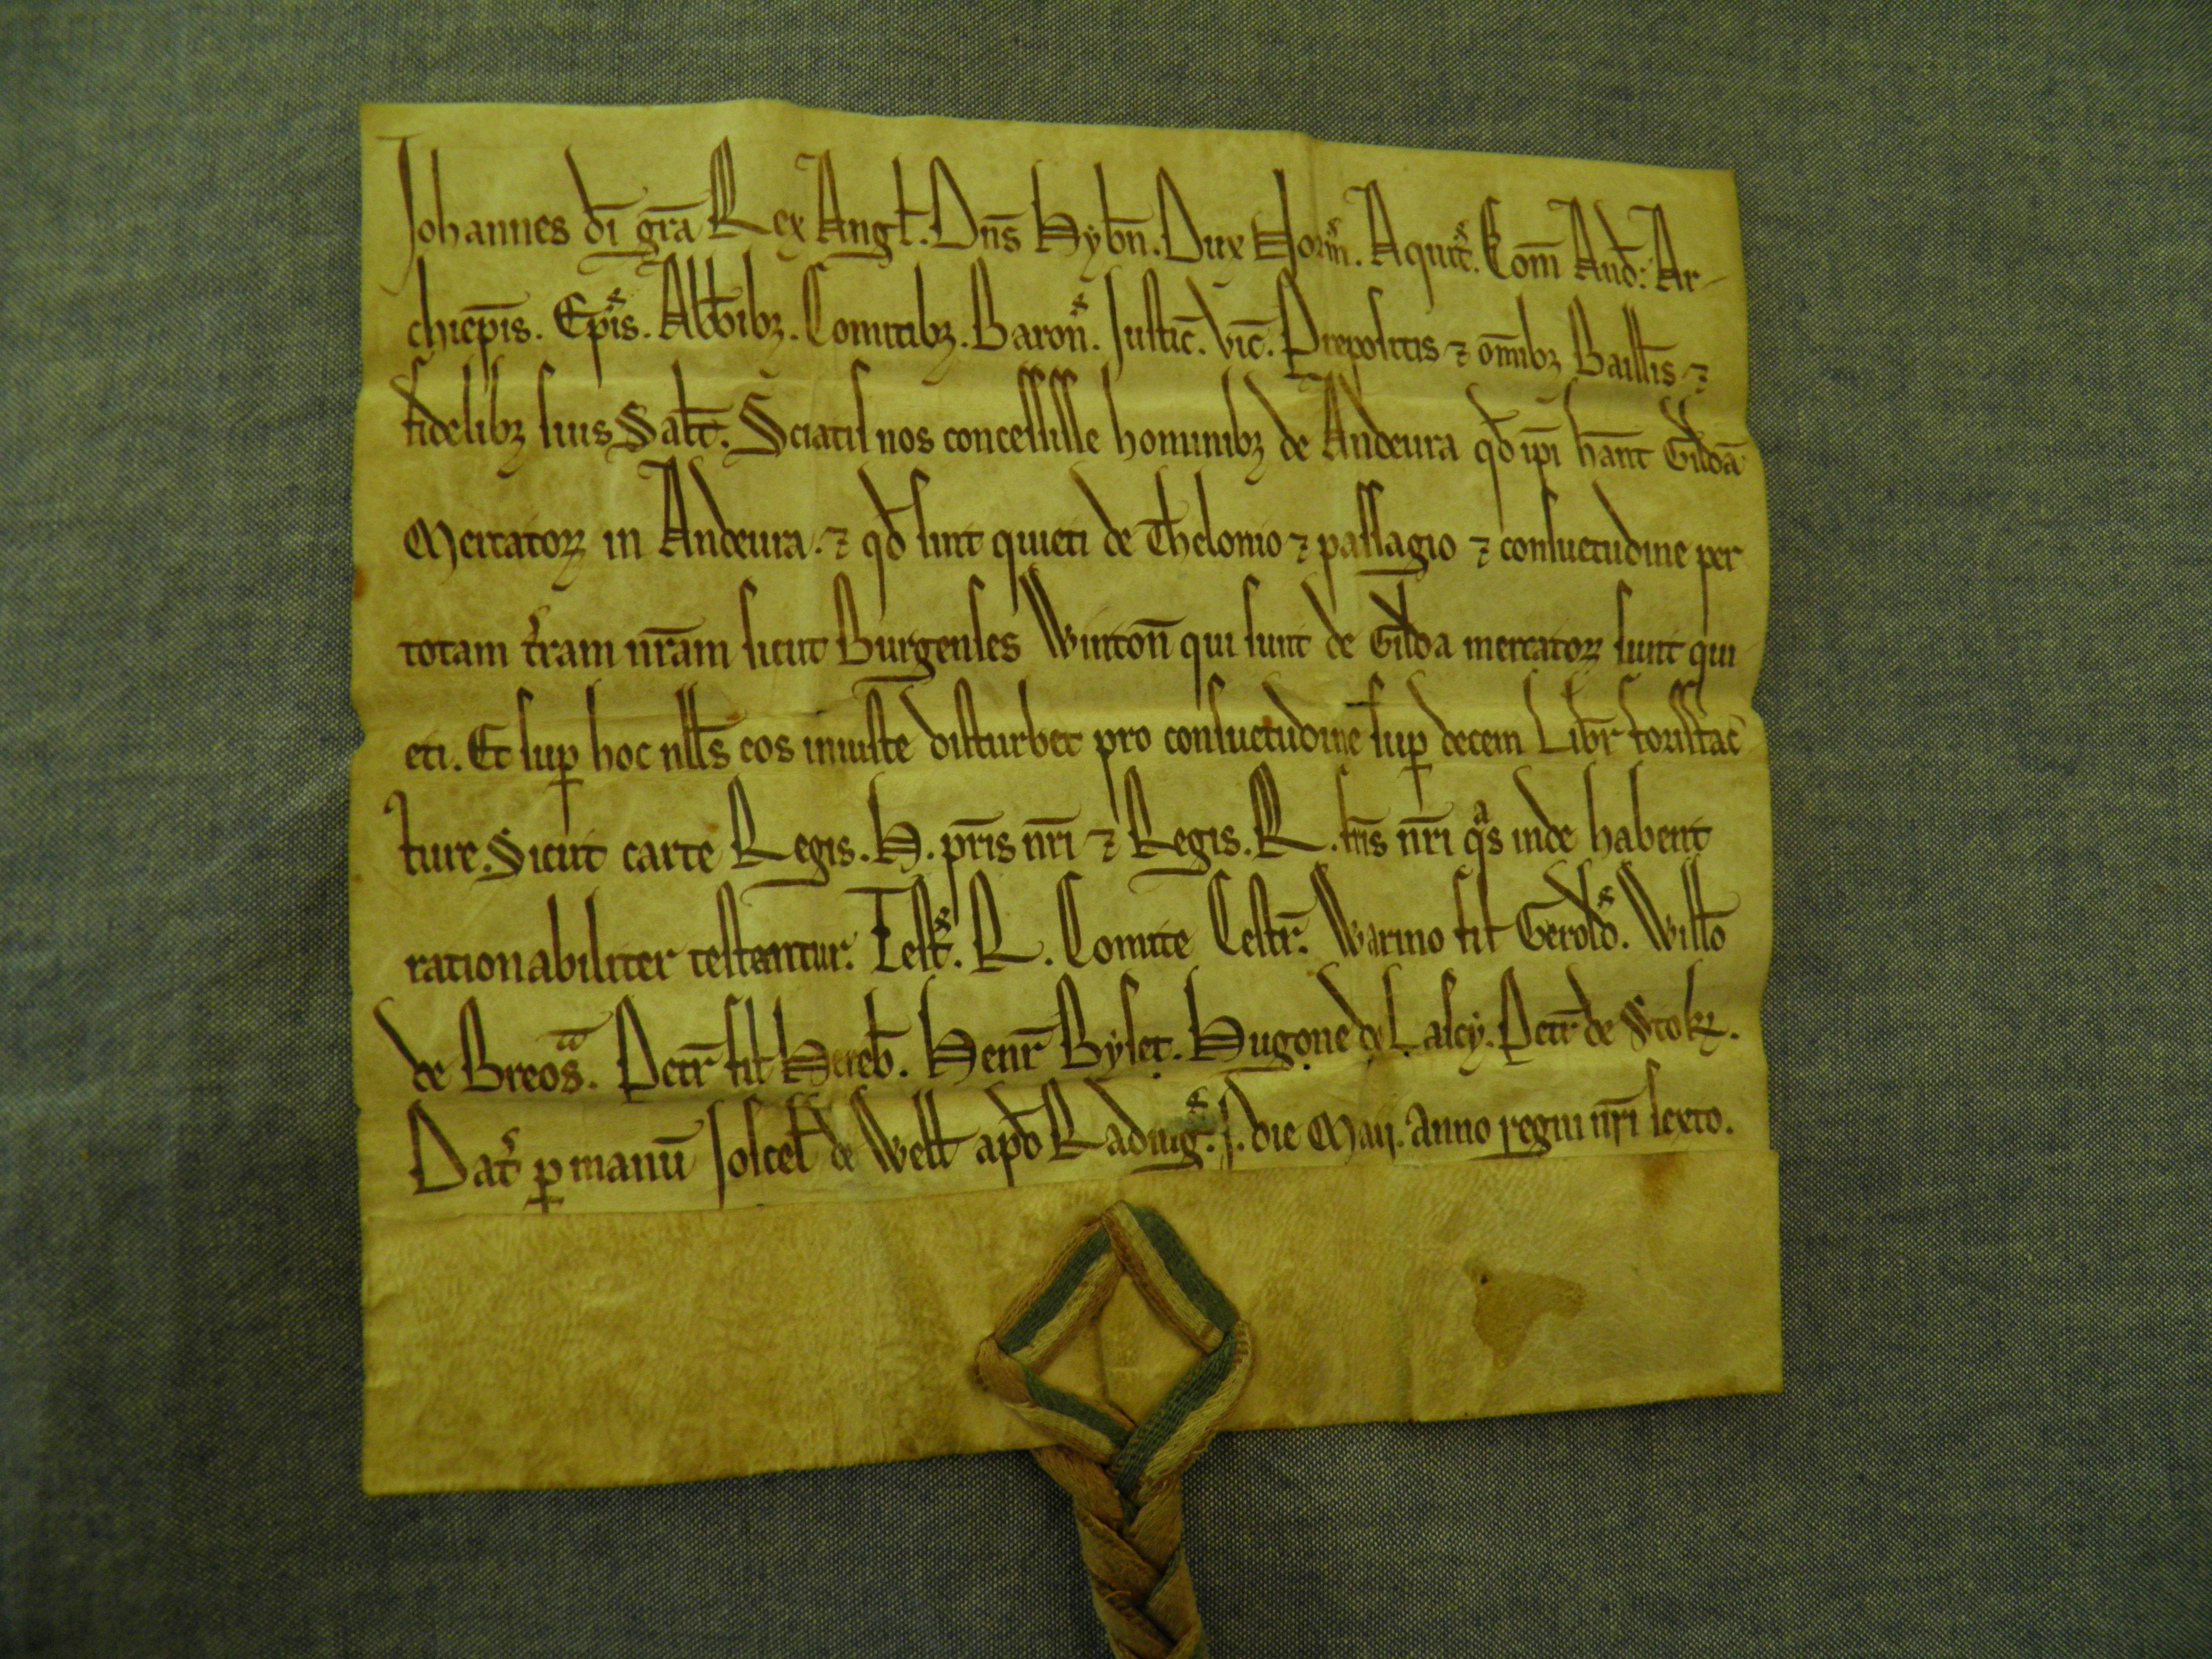 Johannes dī grā Rex Angł. Dn̄s Hyb̄n. Dux Norm̄. Aquit̄. Com̄ And̄. Ar-
chiep̄is. Ep̄is. Abb̄ibꝫ. Comitibꝫ. Baron̄. Justic̄. Vic̄. Prepositis ⁊ om̄ibꝫ Baillīs ⁊
fidelibꝫ suis Salt̄. Sciatis nos concessisse hominibꝫ de Andeura qd̄ ip̄i hānt Gildā
Mercatoꝝ in Andeura. ⁊ qd̄ sint quieti de Thelonio ⁊ passagio ⁊ consuetudine per
totam t̄ram nr̄am sicut Burgenses Winton̄ qui sunt de Gilda mercatoꝝ sunt qui
eti. Et suꝑ hoc nll̄s eos iniuste disturbet pro consuetudine suꝑ decem Libr̄ forisfac̄
ture. Sicut carte Regis. H. pr̄is nr̄i ⁊ Regis. R. fr̄is nr̄i qͣs inde habent
rationabiliter testantur. Test̄. R. Comite Cestr̄. Warino fil̄ Gerold̄. Willō
de Breosͣ. Petr̄ fil̄ Hereb̄. Henr̄ Byset. Hugone de Lascy. Petr̄ de Stok̄.
Dat̄ ꝑ manū Joscel̄ de Well̄ apd̄ Radinḡ. j. die Maij. anno regni nr̄i sexto.